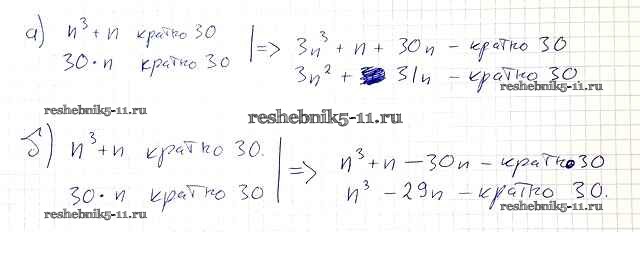 а) n³+n кратно 30
30·n кратно 30
=> 3n³ + n + 30n – кратно 30
3n² + 31n – кратно 30
reshebnik5-11.ru
reshebnik5-11.ru
reshebnik5-11.ru
б) n³+n кратно 30.
30·n кратно 30
=> n³+n – 30n – кратно 30
n³ – 29n – кратно 30.
reshebnik5-11.ru
reshebnik5-11.ru